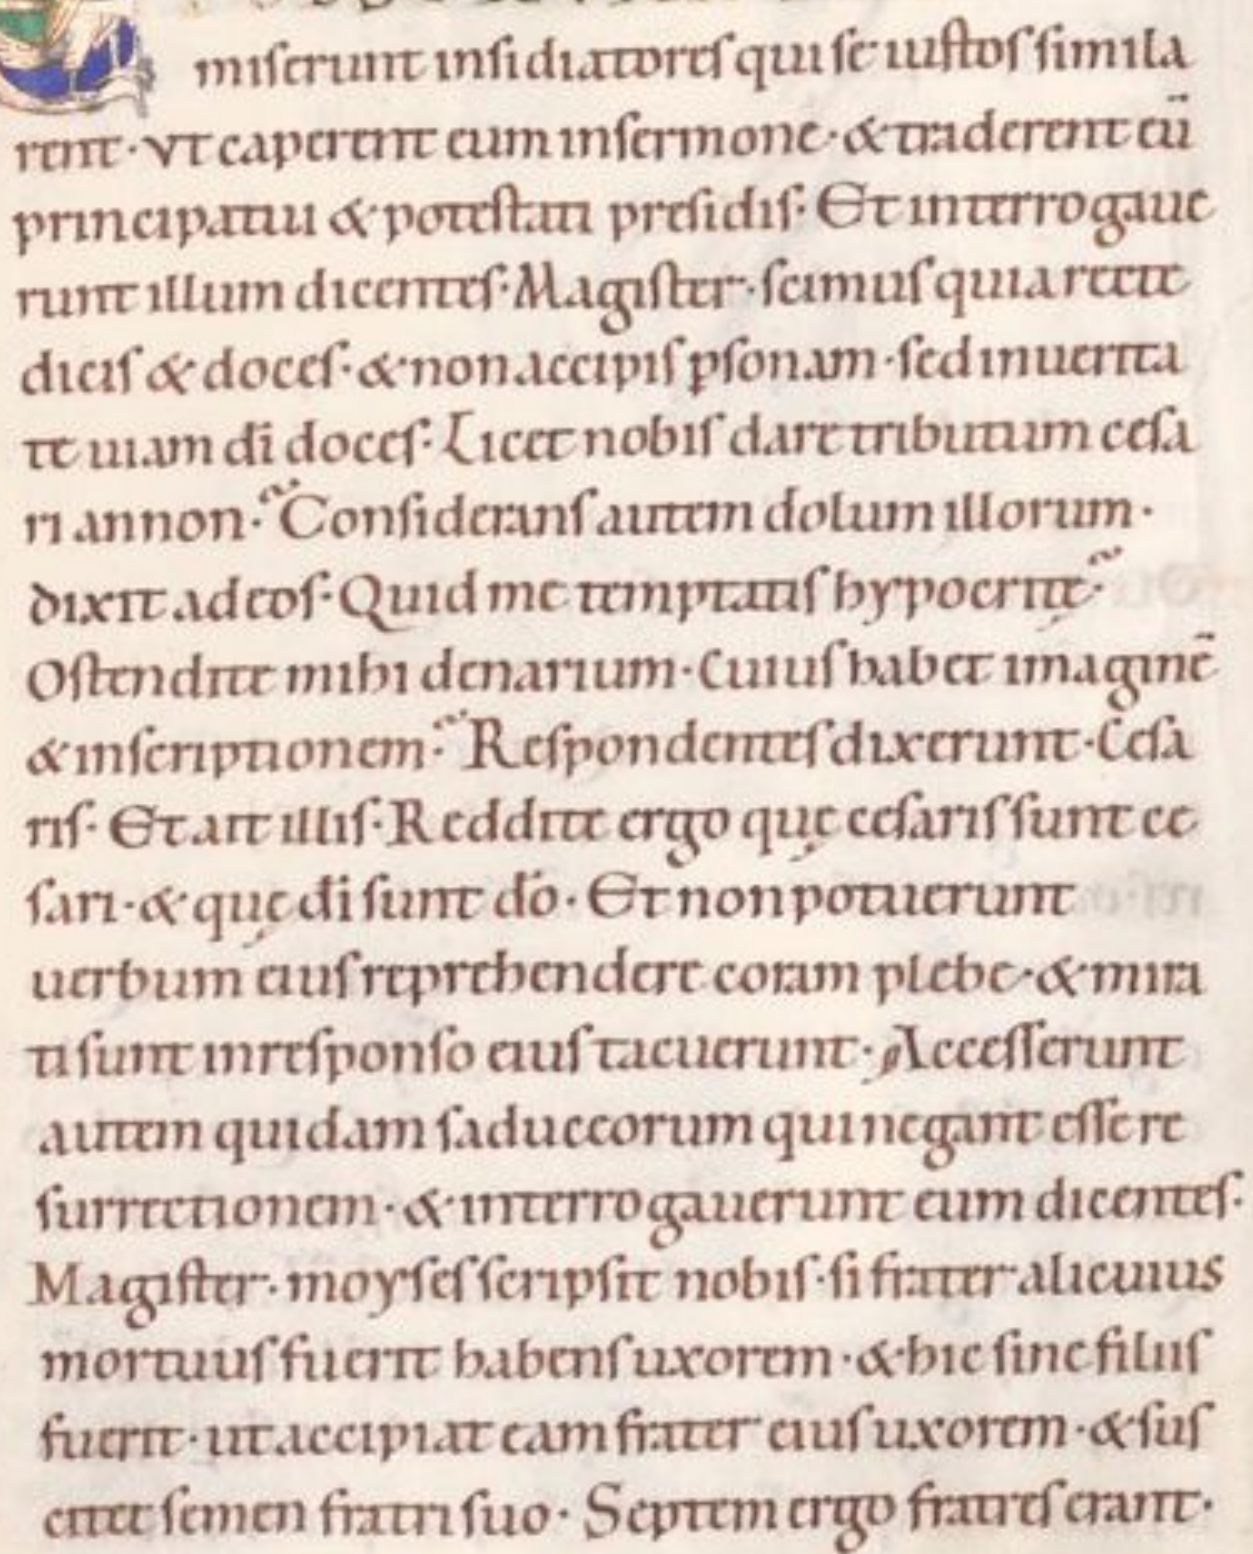 miserunt insidiatores qui se iustos simila
rent · vt caperent eum insermone · & traderent eū
principatui & potestati presidis · Et interrogaue
runt illum dicentes · Magister · scimus quia recte
dicis & doces · & non accipis psonam · sed inuerita
te uiam di doces : Licet nobis dare tributum cesa
ri annon · Considerans autem dolum illorum ·
dixit ad eos · Quid me temptatis hypocritę ·
Ostendite mihi denarium · Cuius habet imaginē
& inscriptionem · Respondentes dixerunt · Cesa
ris · Et ait illis · Reddite ergo quę cesaris sunt ce
sari · & quę di sunt do · Et non potuerunt
uerbum eius reprehendere coram plebe · & mira
ti sunt inresponso eius tacuerunt · Accesserunt
autem quidam saduceorum qui negant esse re
surrectionem · & interrogauerunt eum dicentes ·
Magister · moyses scripsit nobis · si frater alicuius
mortuus fuerit habens uxorem · & hic sine filiis
fuerit · ut accipiat eam frater eius uxorem · & sus
citet semen fratri suo · Septem ergo fratres erant ·